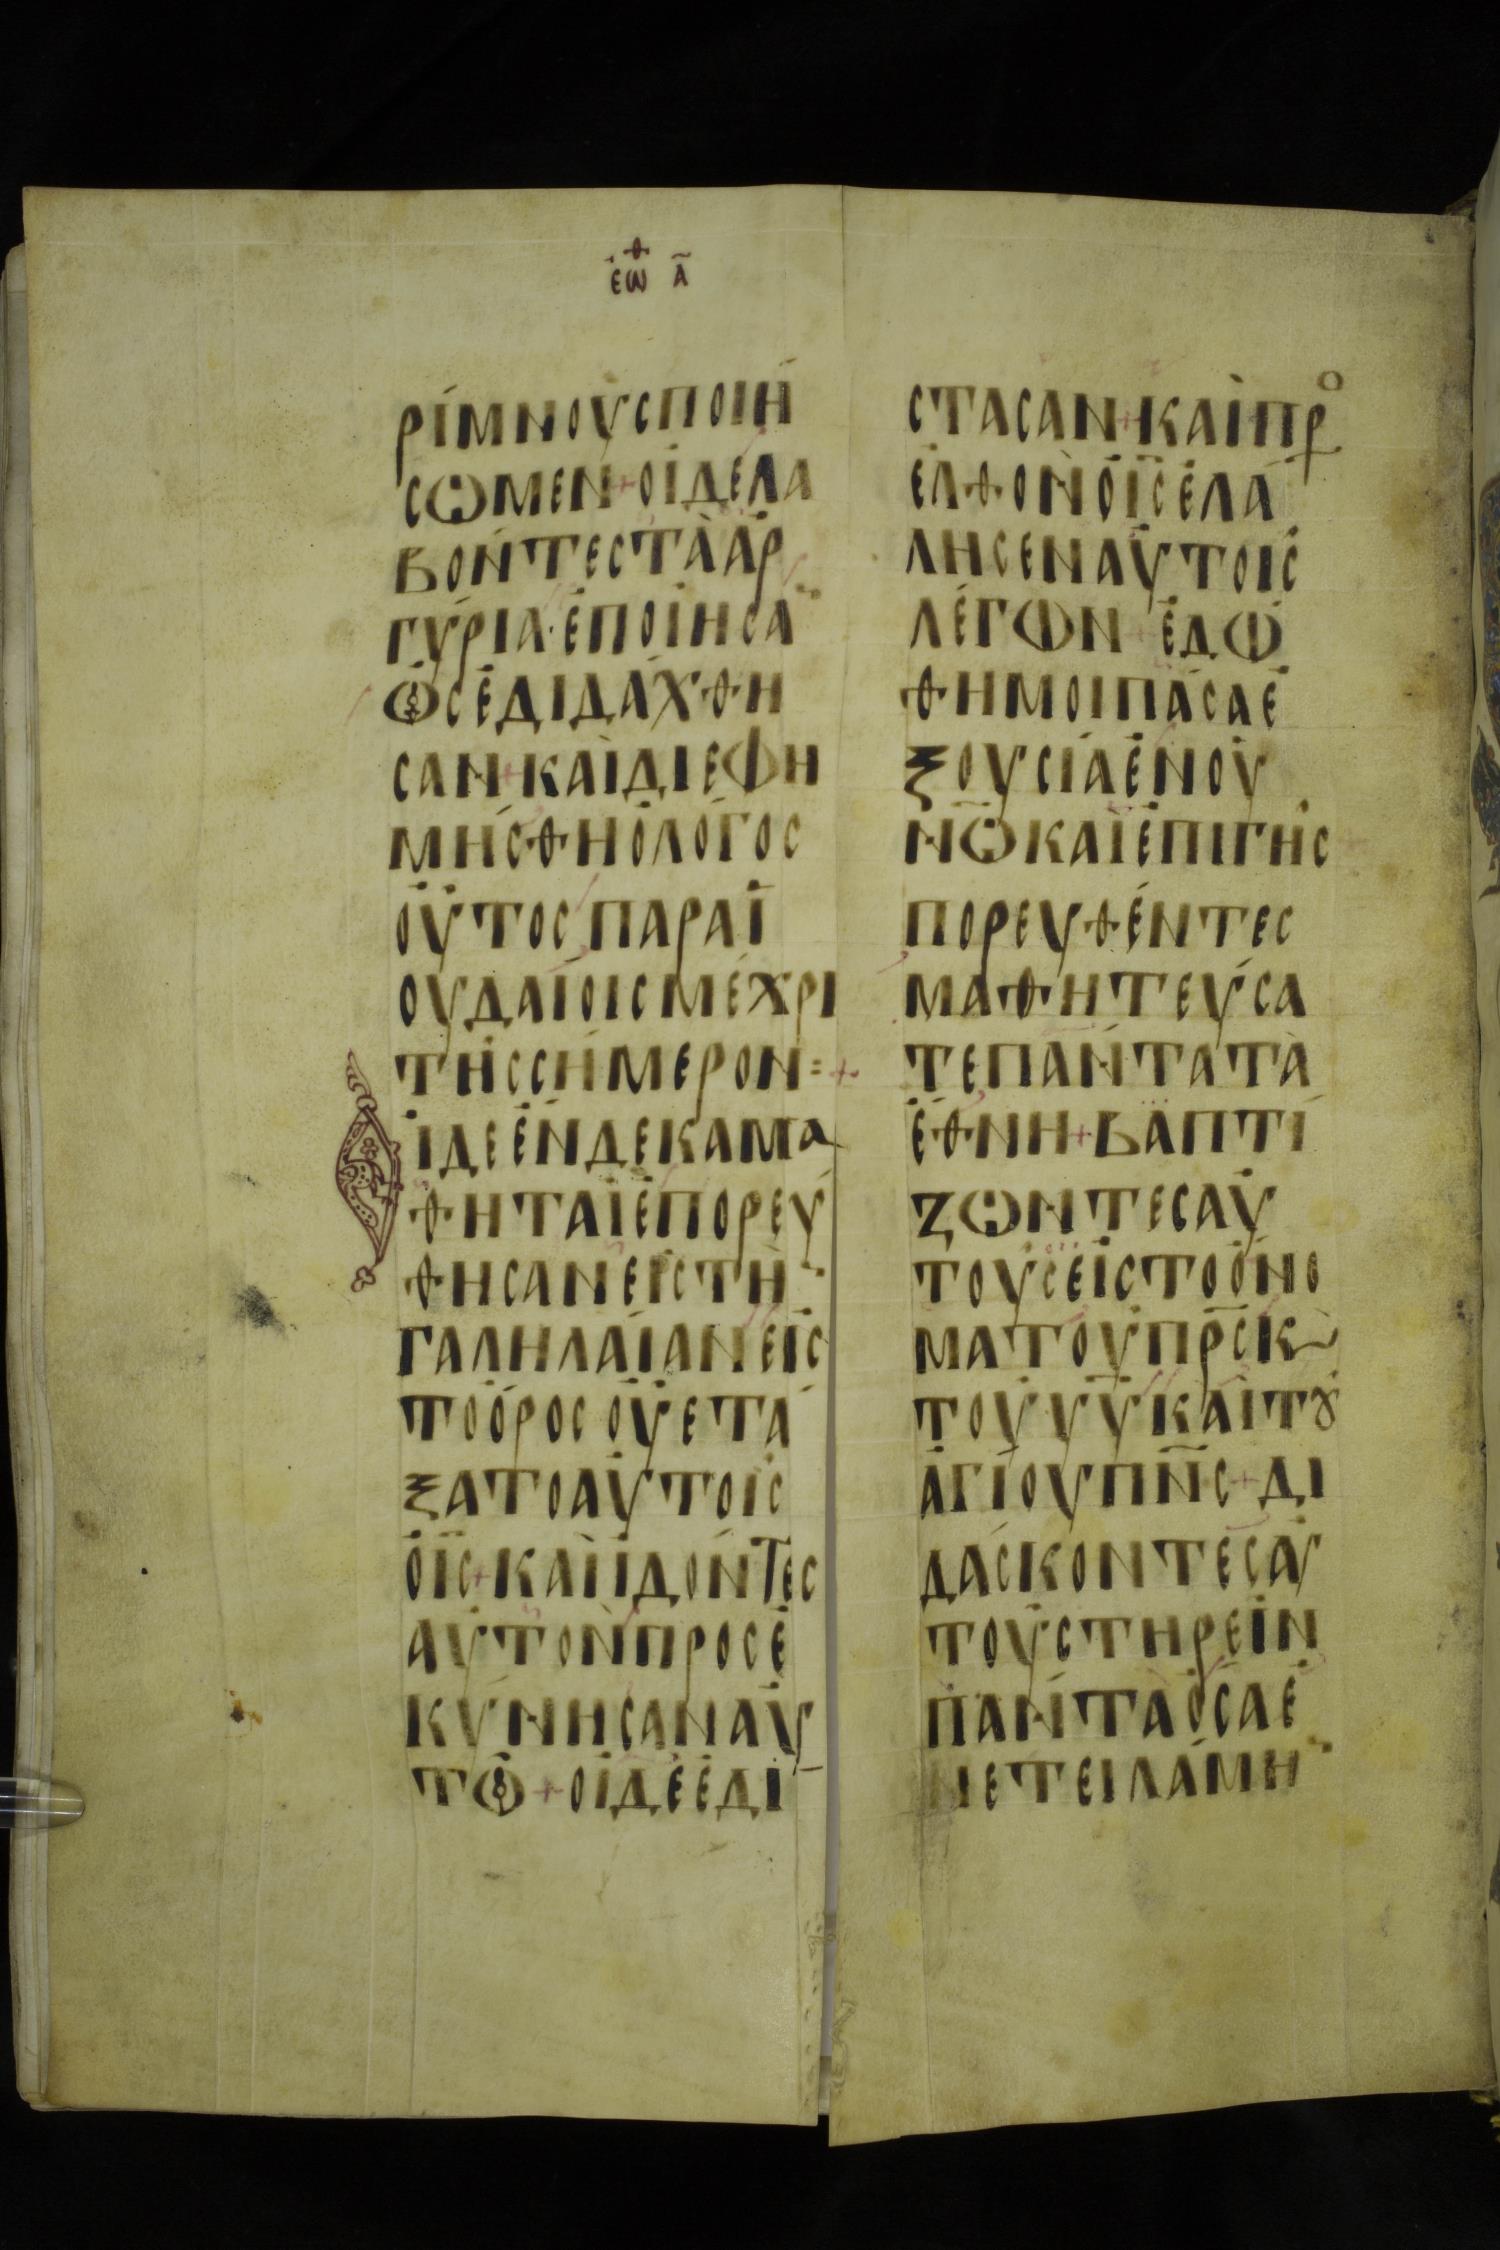 ἑωθ Α
ΡΊΜΝΟΥΣ ΠΟΙΉ
ΣΩΜΕΝ + ΟἹ ΔΕ ΛΑ
ΒΌΝΤΕΣ ΤᾺ ἈΡ
ΓΎΡΙΑ· ἘΠΟΊΗΣΑ
ὩΣ ἘΔΙΔΆΧΘΗ
ΣΑΝ + ΚΑῚ ΔΙΕΦΗ
ΜΉΣΘΗ Ὁ ΛΌΓΟΣ
ΟὟΤΟΣ ΠΑΡᾺ Ἰ
ΟΥΔΑΊΟΙΣ ΜΈΧΡΙ
ΤΗ͂Σ ΣΉΜΕΡΟΝ = +
Οἱ ΔΕ ἝΝΔΕΚΑ ΜΑ
ΘΗΤΑῚ ἘΠΟΡΕΎ
ΘΗΣΑΝ ΕἸΣ ΤῊ
ΓΑΛΗΛΑΊΑΝ ΕἸΣ
ΤΟ ὌΡΟΣ ΟὟ ἘΤΆ
ΞΑΤΟ ΑΥ̓ΤΟΙΣ
Ὁ ΙΣ + ΚΑῚ ἸΔΌΝΤΕΣ
ΑΥ̓ΤῸΝ ΠΡΟΣΕ
ΚΎΝΗΣΑΝ ΑΥ̓
ΤΩ + ΟἹ ΔΈ ἘΔΊ
ΣΤΑΣΑΝ + ΚΑῚ ΠΡΟ
ΕΛΘῺΝ Ὁ ΙΣ ἘΛΆ
ΛΗΣΕΝ ΑΥ̓ΤΟΙΣ
ΛΈΓΩΝ + ἘΔΌ
ΘΗ ΜΟΙ ΠΑΣΑ Ἐ
ΞΟΥΣΊΑ ἘΝ ΟΥ̓
ΝΩ ΚΑῚ ἘΠΙ ΓΗΣ
ΠΟΡΕΥΘΈΝΤΕΣ
ΜΑΘΗΤΕΎΣΑ
ΤΕ ΠΆΝΤΑ ΤᾺ
ἜΘΝΗ + ΒΑΠΤΊ
ΖΩΝΤΕΣ ΑΥ̓
ΤΟΥΣ ΕἸΣ ΤΟ ὌΝΟ
ΜΑ ΤΟΥ ΠΡΣ Κ
ΤΟΥ ΥΥ ΚΑῚ ΤΟΥ
ἉΓΊΟΥ ΠΝΣ + ΔΙ
ΔΆΣΚΟΝΤΕΣ ΑΥ̓
ΤΟΥΣ ΤΗΡΕΙΝ
ΠΆΝΤΑ ὍΣΑ Ἐ
ΝΕΤΕΙΛΆΜΗ